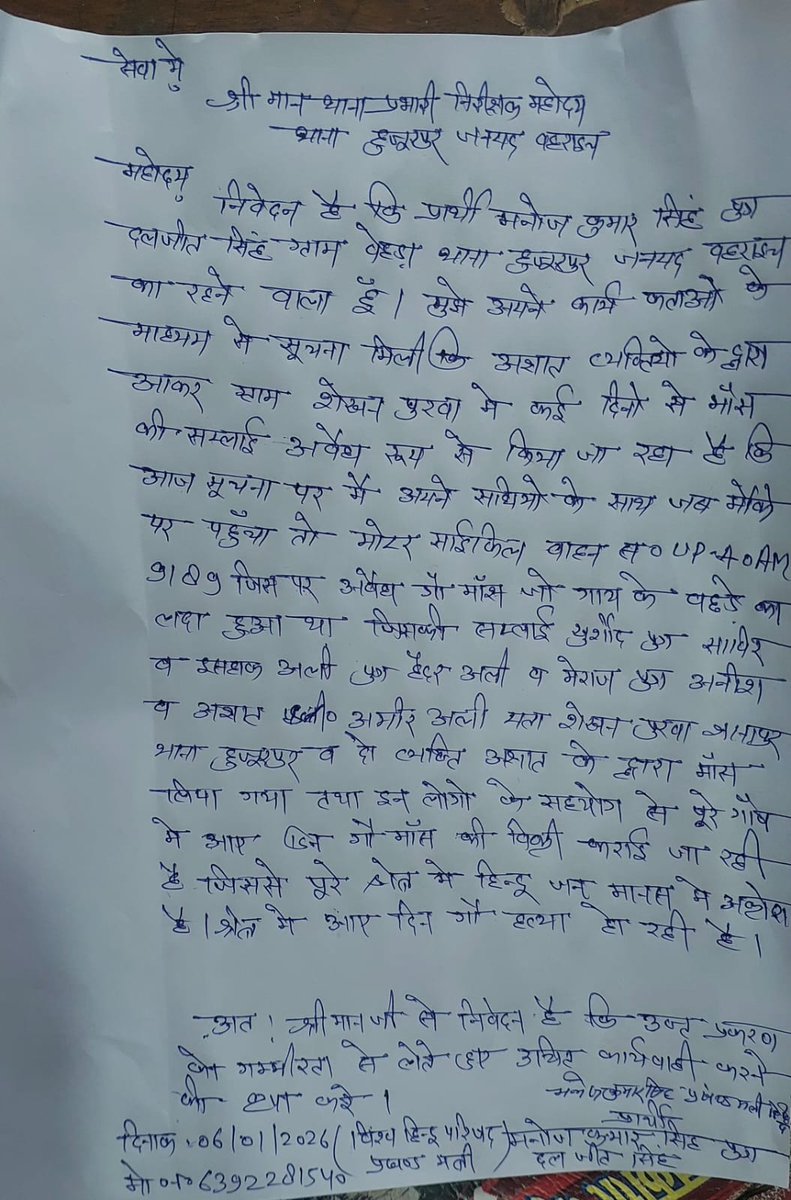 सेवा मे
श्री मान थाना प्रभारी निरीक्षक महोदय
थाना हुजूरपुर जनपद बहराइच
महोदय
निवेदन है कि प्रार्थी मनोज कुमार सिंह पुत्र
दलजीत सिंह ग्राम वेहडा थाना हुजूरपुर जनपद बहराइच
का रहने वाला हूँ। मुझे अपने कार्य कर्ताओ के
माध्यम से सूचना मिली कि अज्ञात व्यक्तियो के द्वारा
आकर ग्राम शेखन पुरवा मे कई दिनो से माँस
की सप्लाई अवैध रूप से किया जा रहा है कि
आज सूचना पर मै अपने साथियो के साथ जब मौके
पर पहुँचा तो मोटर साईकिल वाहन स० UP-40AM
9189 जिस पर अवैध गौ माँस जो गाय के बछडे का
लदा हुआ था जिसकी सप्लाई खुर्शीद पुत्र साबिर
व इसहाक अली पुत्र हैदर अली व मेराज पुत्र अनीश
व अज्ञात अमीर अली पता शेखन पुरवा
थाना हुजूरपुर व दो व्यक्ति अज्ञात के द्वारा माँस
लिया गया तथा इन लोगो के सहयोग से पूरे गाँव
मे आए दिन गौ माँस की बिक्री कराई जा रही
है जिससे पूरे क्षेत्र मे हिन्दू जन मानस मे आक्रोश
है। क्षेत्र मे आए दिन गौ हत्या हो रही है।
अतः श्रीमान जी से निवेदन है कि उक्त प्रकरण
को गम्भीरता से लेते हुए उचित कार्यवाही करने
की कृपा करे।
मनोज कुमार सिंह प्रखण्ड मन्त्री
प्रार्थी
दिनाक: 06/01/2026 (विश्व हिन्दू परिषद) मनोज कुमार सिंह पुत्र
मो०न० 6392281540 प्रखण्ड मंत्री दल जीत सिंह